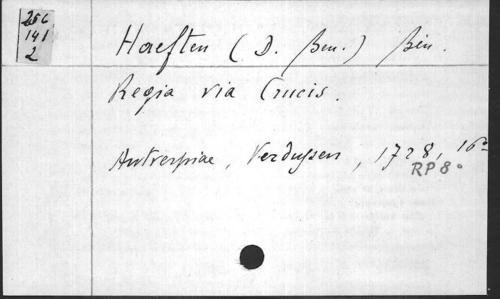 256
141
2
Haeften (D. Ben.) Ben.
Regia via Crucis.
Antverpiae, Verdussen, 1728, 16°
RP 8°